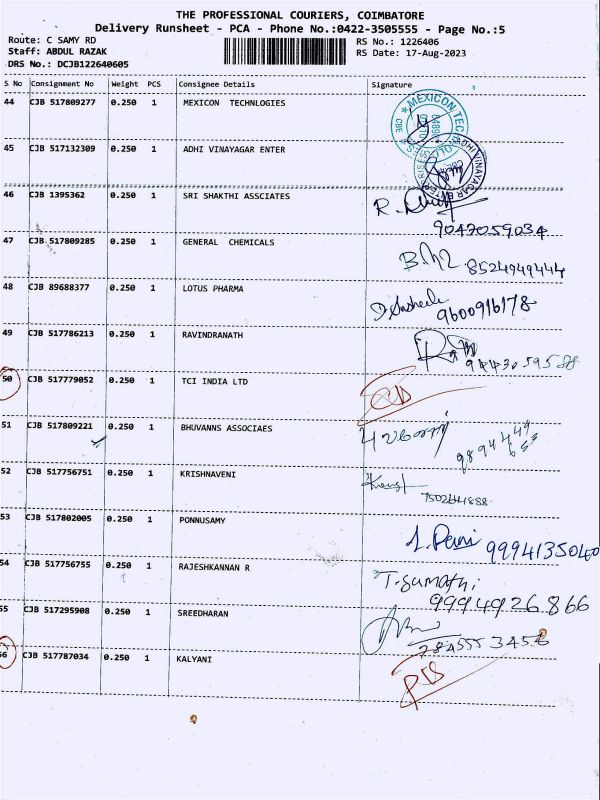 THE PROFESSIONAL COURIERS, COIMBATORE
Delivery Runsheet - PCA - Phone No.:0422-3505555 - Page No.:5
Route: C SAMY RD RS No.: 1226406
Staff: ABDUL RAZAK RS Date: 17-Aug-2023
DRS No.: DCJB122640605
S No Consignment No Weight PCS Consignee Details Signature
44 CJB 517809277 0.250 1 MEXICON TECHNLOGIES
45 CJB 517132309 0.250 1 ADHI VINAYAGAR ENTER
46 CJB 1395362 0.250 1 SRI SHAKTHI ASSCIATES
9047059034
47 CJB 517809285 0.250 1 GENERAL CHEMICALS
8524949444
48 CJB 89688377 0.250 1 LOTUS PHARMA
9600916178
49 CJB 517786213 0.250 1 RAVINDRANATH
9443059588
50 CJB 517779052 0.250 1 TCI INDIA LTD
51 CJB 517809221 0.250 1 BHUVANNS ASSOCIAES
52 CJB 517756751 0.250 1 KRISHNAVENI
53 CJB 517802005 0.250 1 PONNUSAMY
9994135040
54 CJB 517756755 0.250 1 RAJESHKANNAN R
T. Sumathi
9994926866
55 CJB 517295908 0.250 1 SREEDHARAN
56 CJB 517787034 0.250 1 KALYANI